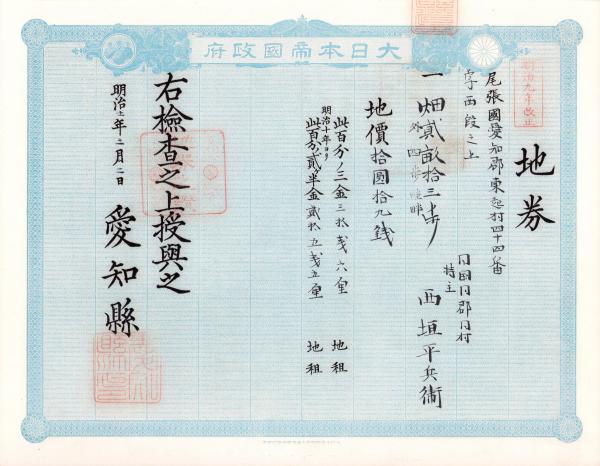 大日本帝國政府
明治九年改正
地券
尾張國愛知郡東起村四十四番
字西段之上
一畑貳畝拾三歩
外四歩畦畔
同國同郡同村
持主 西垣平兵衛
地價拾圓拾九錢
此百分ノ三金三拾錢六厘 地租
明治十年ヨリ
此百分ノ貳半金貳拾五錢五厘 地租
右檢査之上授與之
明治十二年二月二日
愛知縣